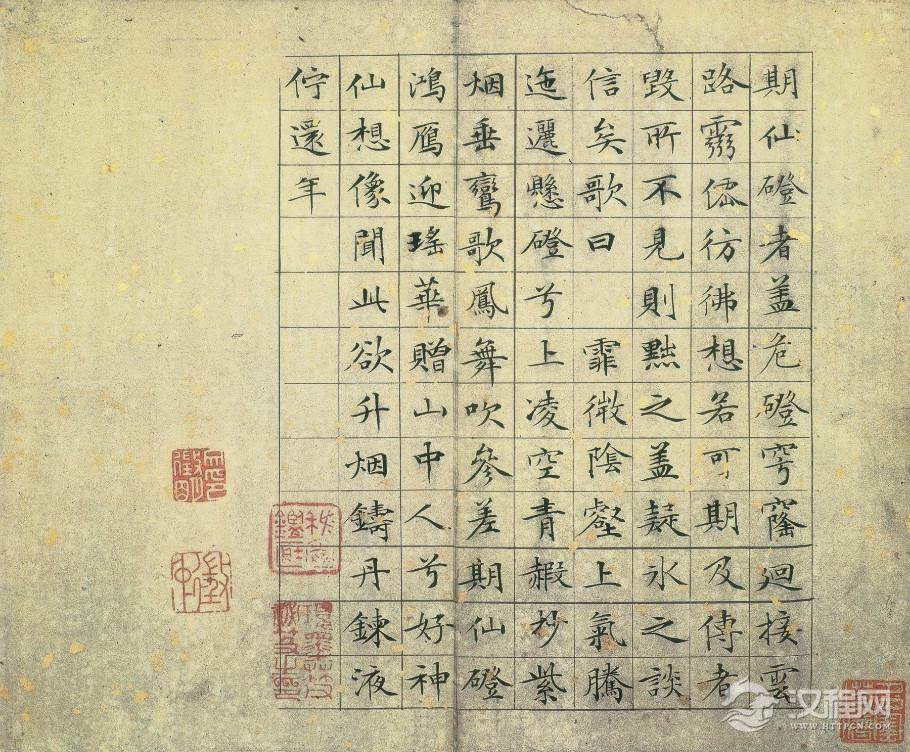 期仙磴者盖危磴穹窿迥接雲
路靈僊彷彿想若可期及傳者
毀所不見則黜之盖疑冰之談
信矣歌曰 霏微陰壑上氣騰
迤邐懸磴兮上凌空青霞杪紫
烟垂鸞歌鳳舞吹參差期仙磴
鴻鴈迎瑤華贈山中人兮好神
仙想像聞此欲升烟鑄丹鍊液
佇還年
汉程网
WWW.HTTPCN.COM